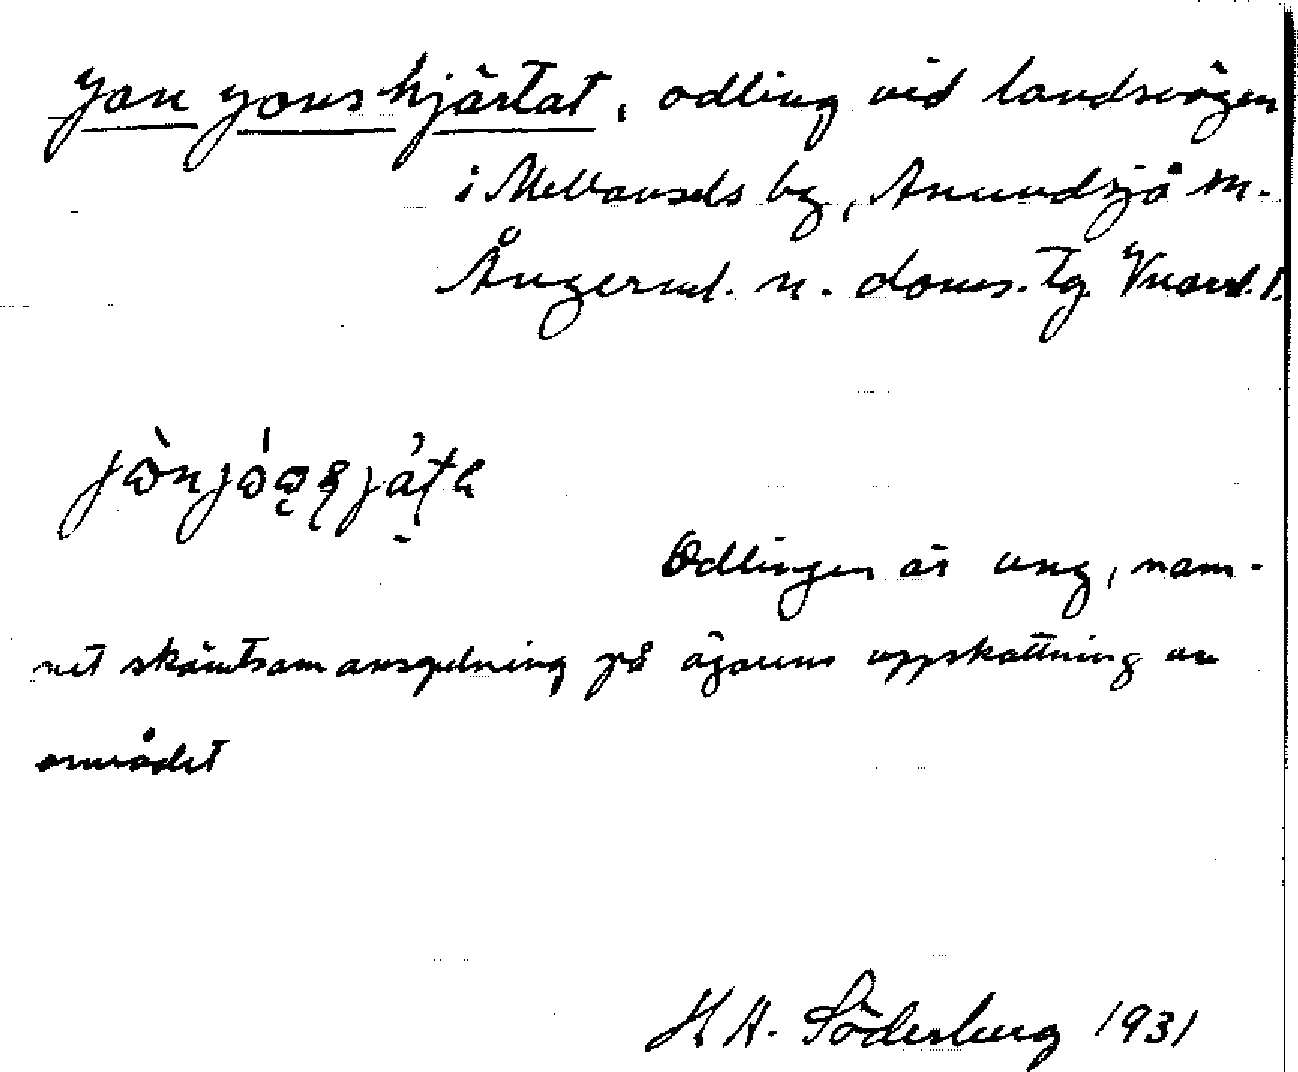 Jan Jons hjärtat, odling vid landsvägen
i Mellansels by, Anundsjö sn.
Ångerml. n. doms.tg Vnorrl. l.
Odlingen är ung, nam-
net skämtsam anspelning på ägarens uppskattning av
området
H A. Söderberg 1931